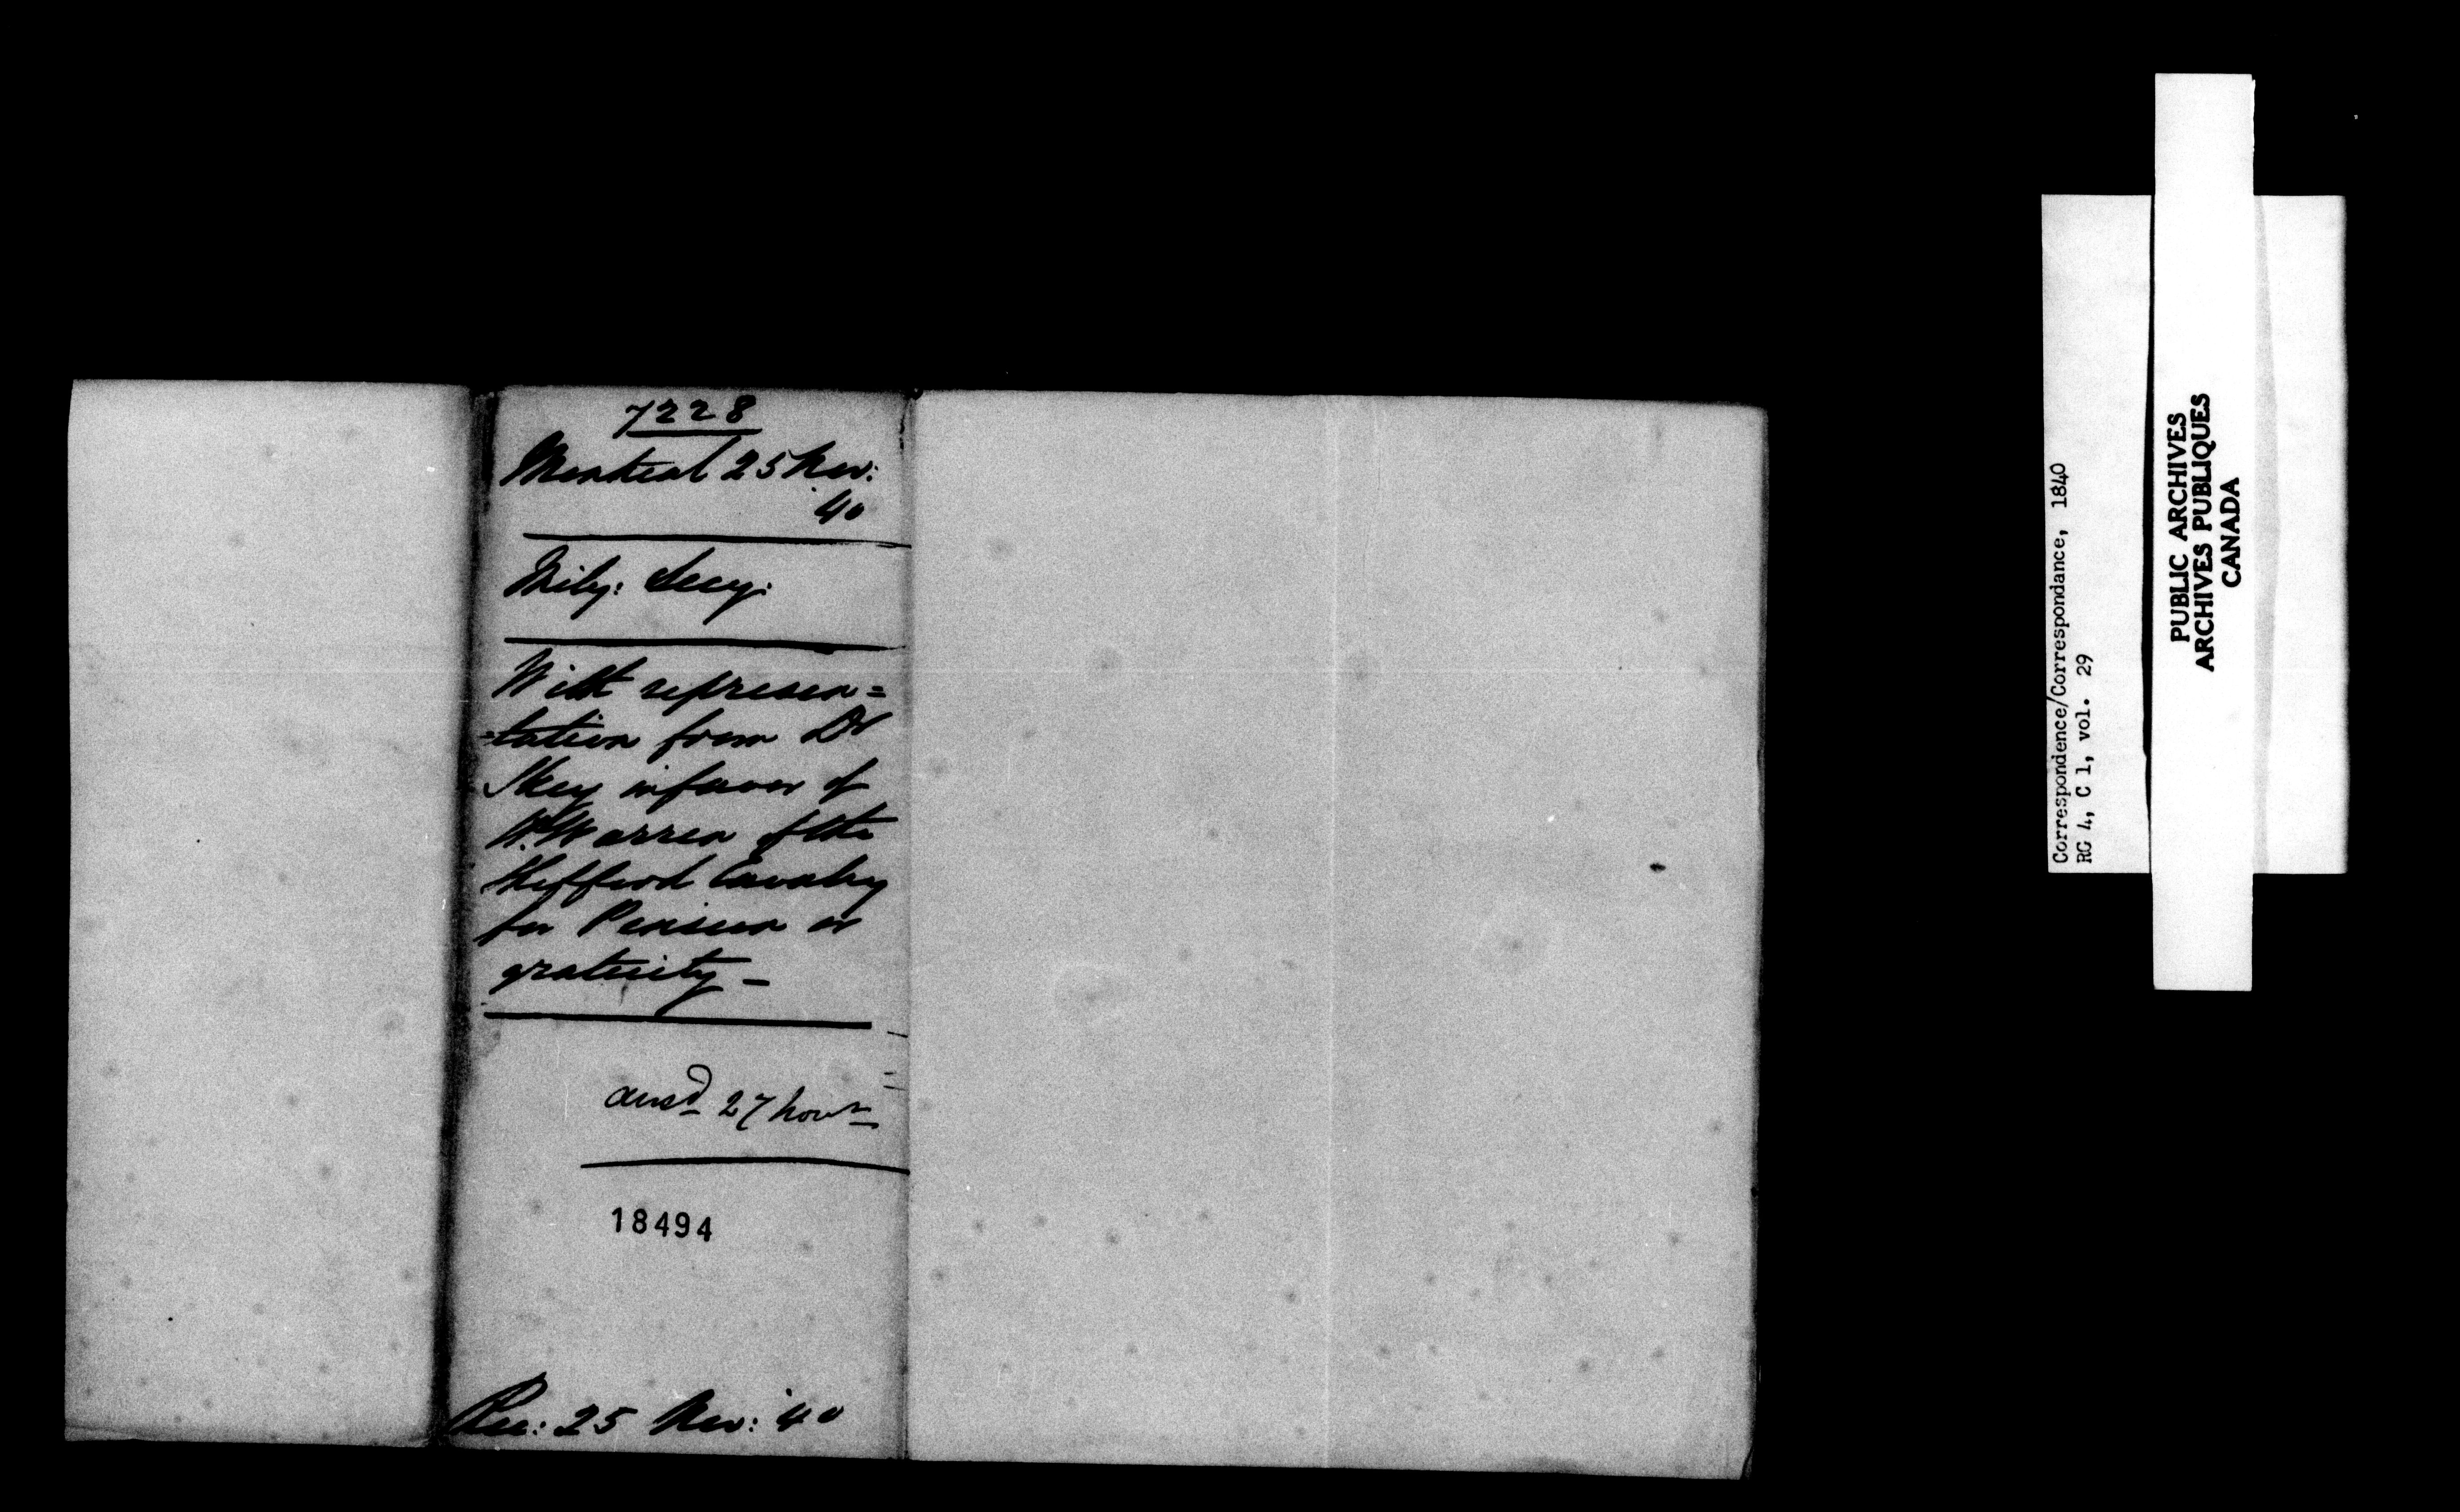 7228
Montreal 25 Nov:
40
Mily: Secy:
With represen=
=tation from Dr
Skey in favor of
Wm Warren of the
Shefford Cavalry
for Pension or
gratuity -
ansd 27 Novr
18494
Rec: 25 Nov: 40
Correspondence/Correspondance, 1840
RG 4, C 1, vol. 29
PUBLIC ARCHIVES
ARCHIVES PUBLIQUES
CANADA